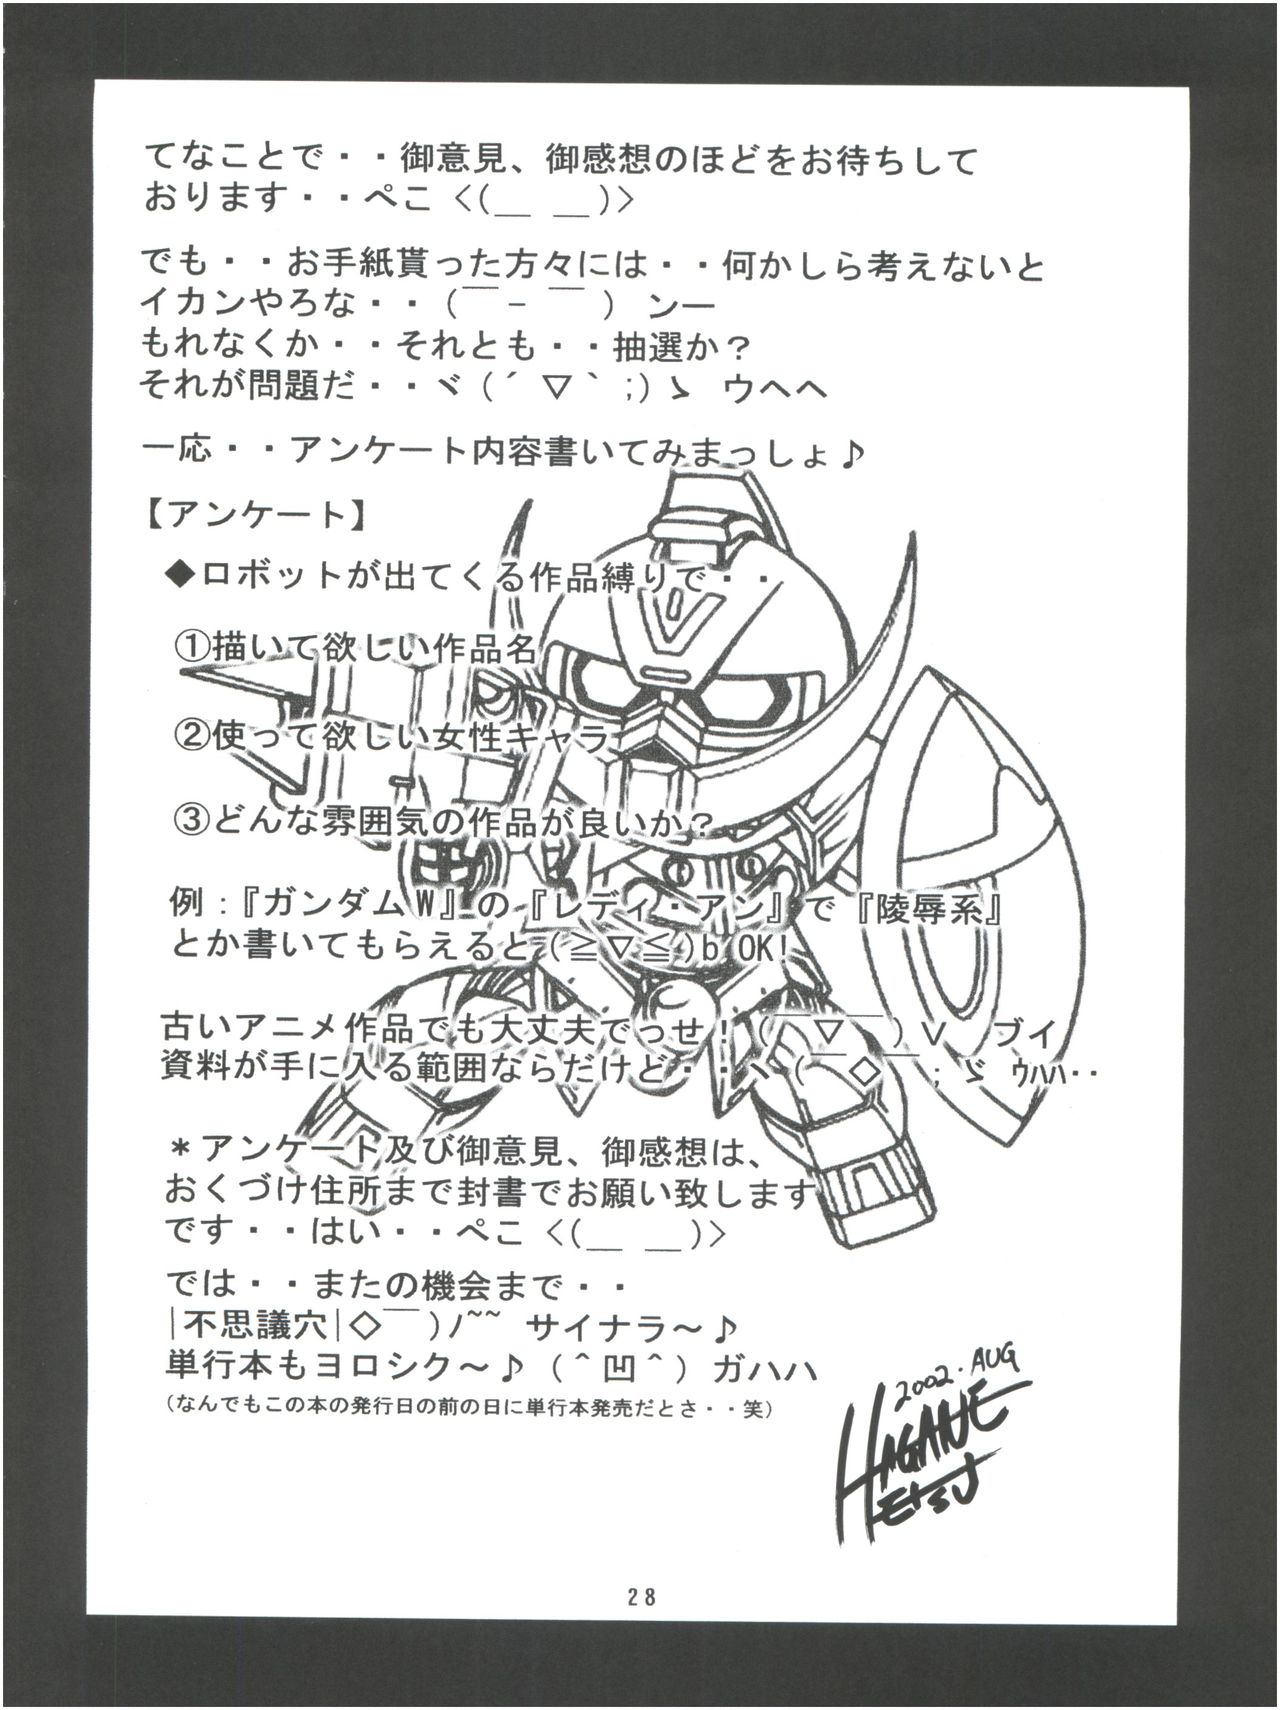 てなことで・・御意見、御感想のほどをお待ちして
おります・・ぺこ <(＿ ＿)>
でも・・お手紙貰った方々には・・何かしら考えないと
イカンやろな・・ (￣ - ￣ ) ンー
もれなくか・・それとも・・抽選か？
それが問題だ・・ヾ(´ ▽｀;)ゝ ウヘヘ
一応・・アンケート内容書いてみまっしょ♪
【アンケート】
◆ロボットが出てくる作品縛りで・・
①描いて欲しい作品名
②使って欲しい女性キャラ
③どんな雰囲気の作品が良いか？
例：『ガンダムW』の『レディ・アン』で『陵辱系』
とか書いてもらえると(≧▽≦)b OK!
古いアニメ作品でも大丈夫でっせ！(￣▽￣)Ｖ ブイ
資料が手に入る範囲ならだけど・・ヽ(￣◇￣;ゞ ｳﾊﾊ・・
＊アンケート及び御意見、御感想は、
おくづけ住所まで封書でお願い致します
です・・はい・・ぺこ <(＿ ＿)>
では・・またの機会まで・・
|不思議穴|◇￣)ﾉ~~ サイナラ～♪
単行本もヨロシク～♪ (＾凹＾) ガハハ
(なんでもこの本の発行日の前の日に単行本発売だとさ・・笑)
2002.AUG
HAGANE
TETSU
28